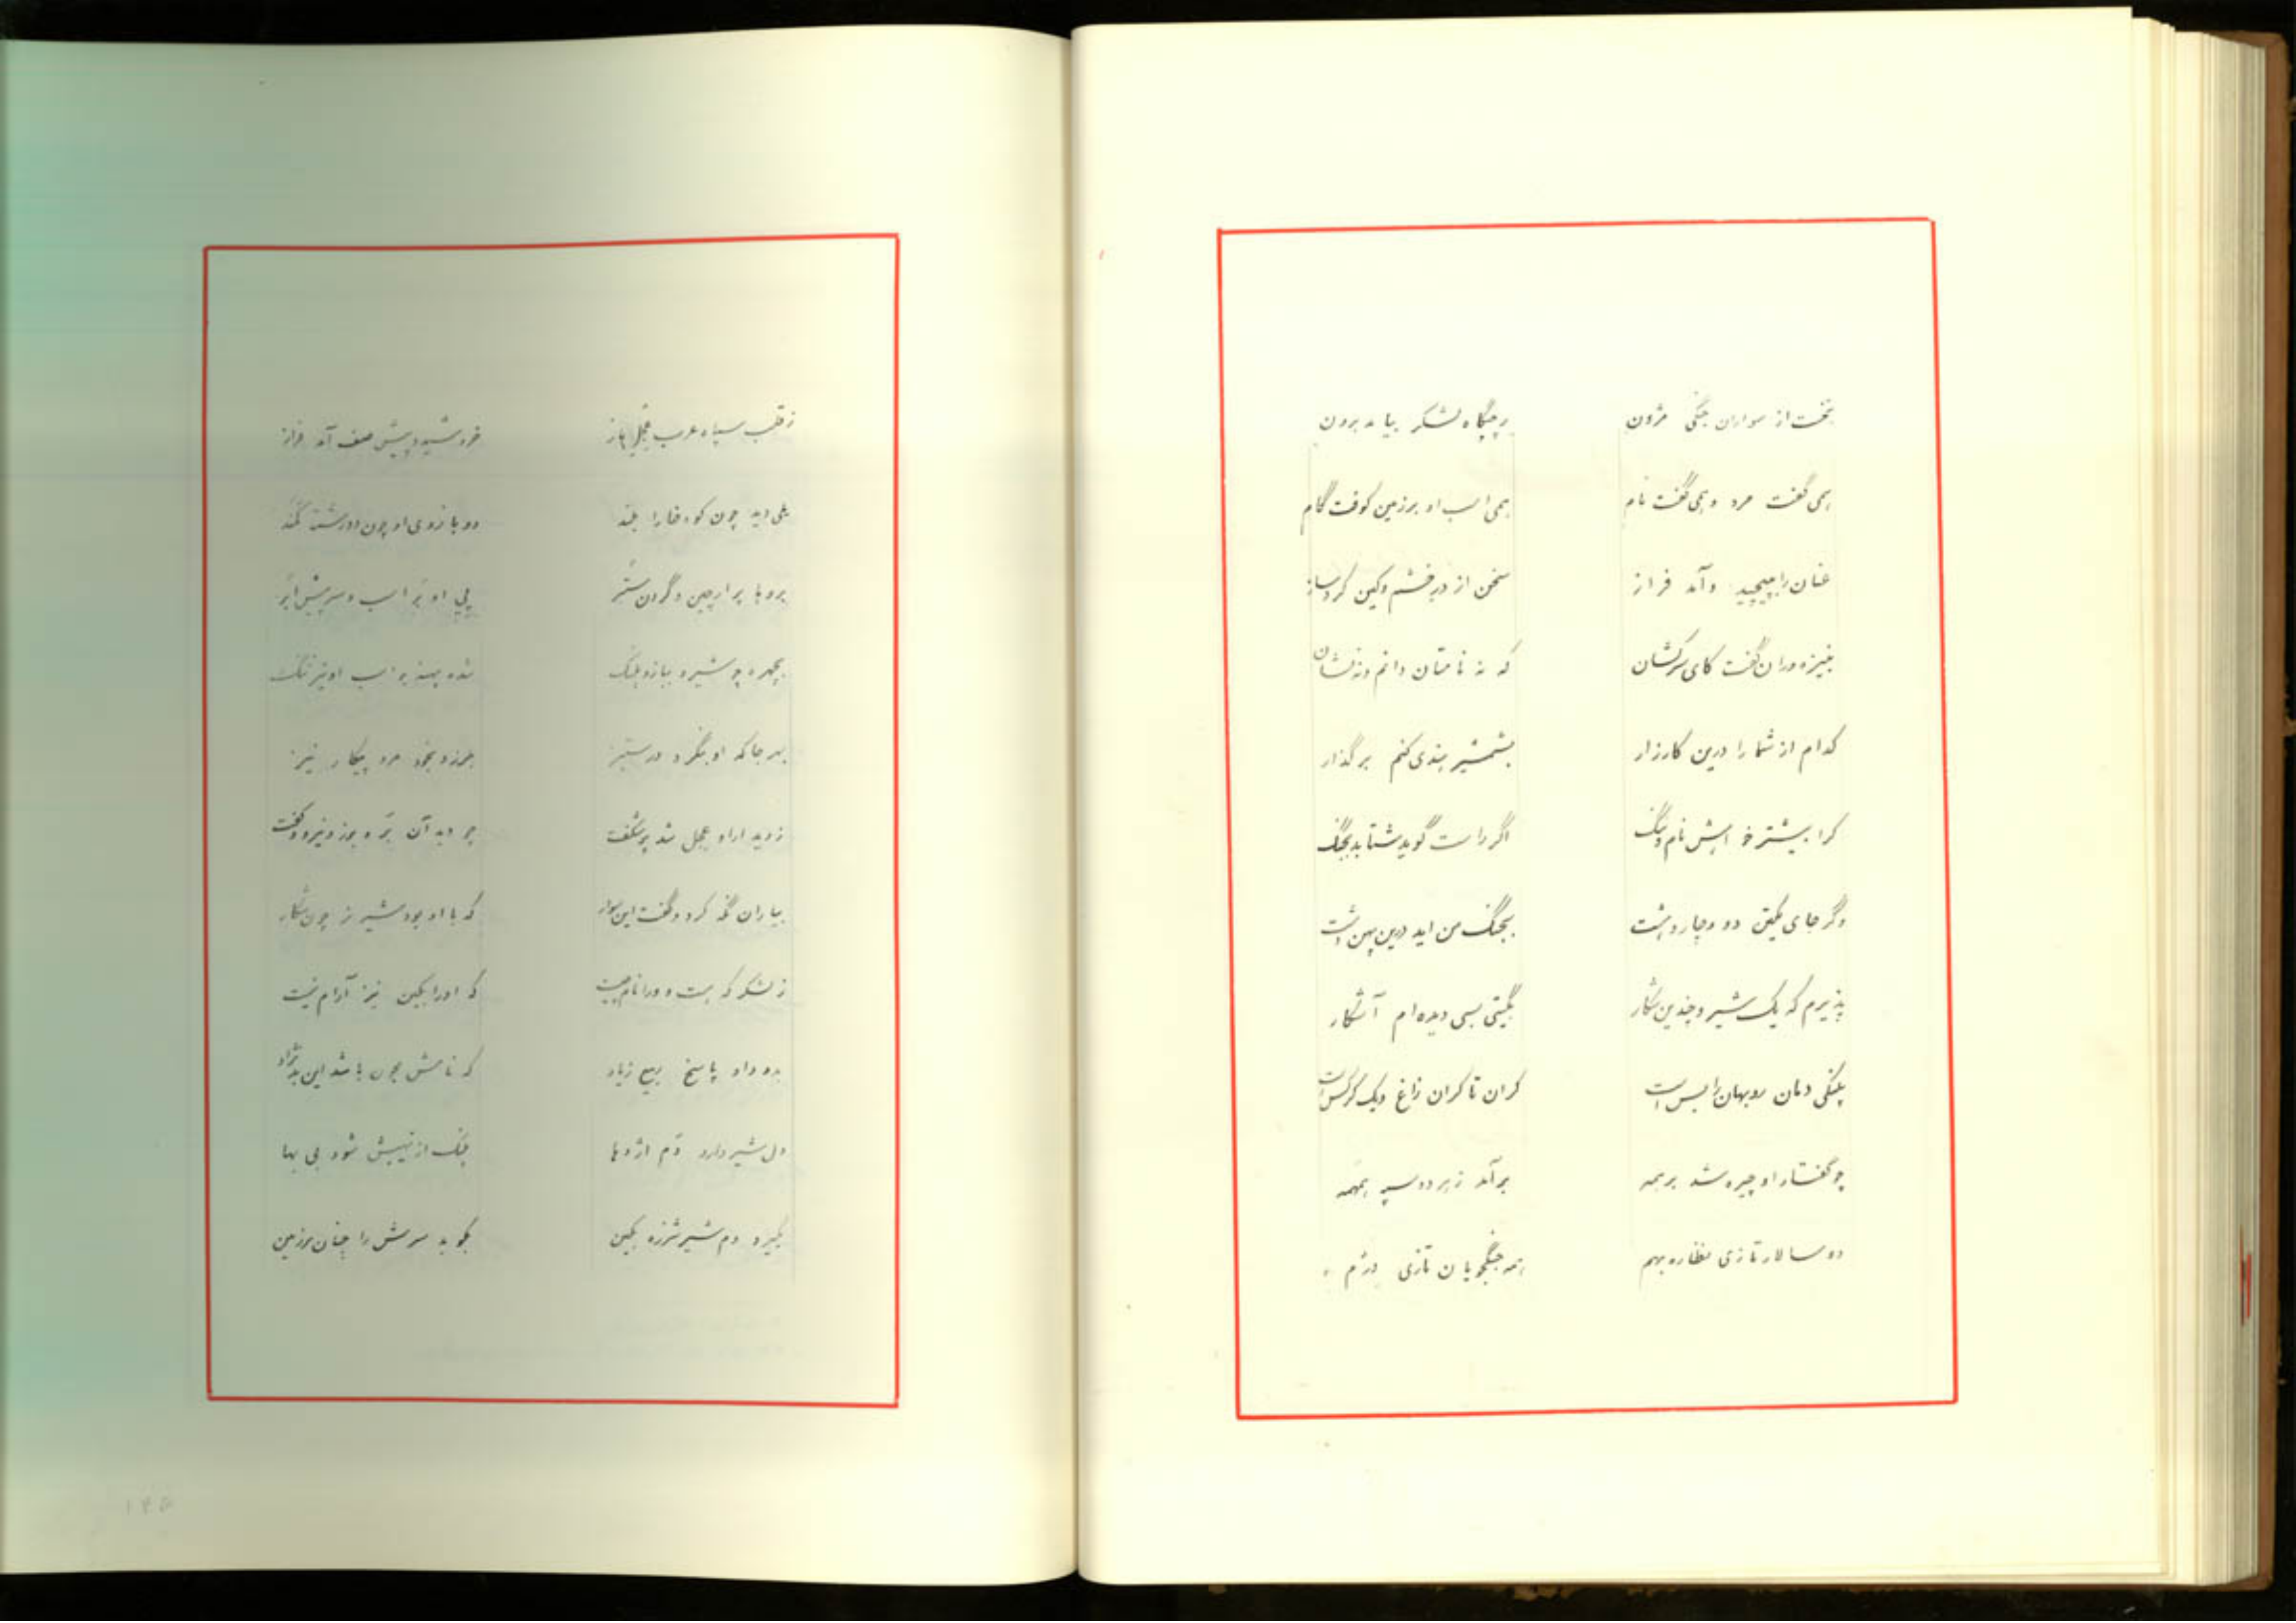 نخست از سواران جنگی فزون    ز جنگاه لشکر بیامد برون
همی گفت مرد و همی گفت نام    همی اسب او بر زمین کوفت گام
عنان را بپیچید و آمد فراز    سخن از در خشم و کین کرد ساز
بنیزه وران گفت کای سرکشان    که نه نامتان دانم و نه نشان
کدام از شما را درین کارزار    بشمشیر هندی کنم برگذار
کرا بیشتر خواهش نام و ننگ    اگر راست گوید شتابد بجنگ
وگر جای یکتن دو و چار و هشت    بجنگ من اید درین پهن دشت
پذیرم که یک شیر و چندین شکار    بگیتی بسی دیده‌ام آشکار
پلنگی دمان روبهان را بس است    کران تا کران زاغ و یک کرکس است
چو گفتار او چیره شد بر همه    برآمد ز هر دو سپه همهمه
دو سالار تازی نظاره بهم    همه جنگجویان تازی دژم
ز قلب سپاه عرب عجل باز    خروشید و پیش صف آمد فراز
یلی دید چون کوه خارا بلند    دو بازوی او چون دو رشته کمند
بروها پر از چین و گردن ستبر    پی او بر اسب و سرش بر ابر
بچهره چو شیر و ببازو پلنگ    شده پهنه بر اسب او نیز تنگ
بهر جا که او بنگرد در ستیز    بلرزد بخود مرد پیکار نیز
ز دیدار او عجل شد پر شگفت    چو دید آن بر و برز و نیرو و گفت
بیاران نگه کرد و گفت این سوار    که با او بود شیر نر چون شکار
ز لشکر که هست و ورا نام چیست    که او را بکین نیز آرام نیست
بدو داد پاسخ ربیع زیاد    که نامش بود باشد این بد نژاد
دل شیر دارد دم اژدها    پلنگ از نهیبش شود بی بها
بگیرد دم شیر شرزه بکین    بکوبد سرش را چنان بر زمین
۱۴۵